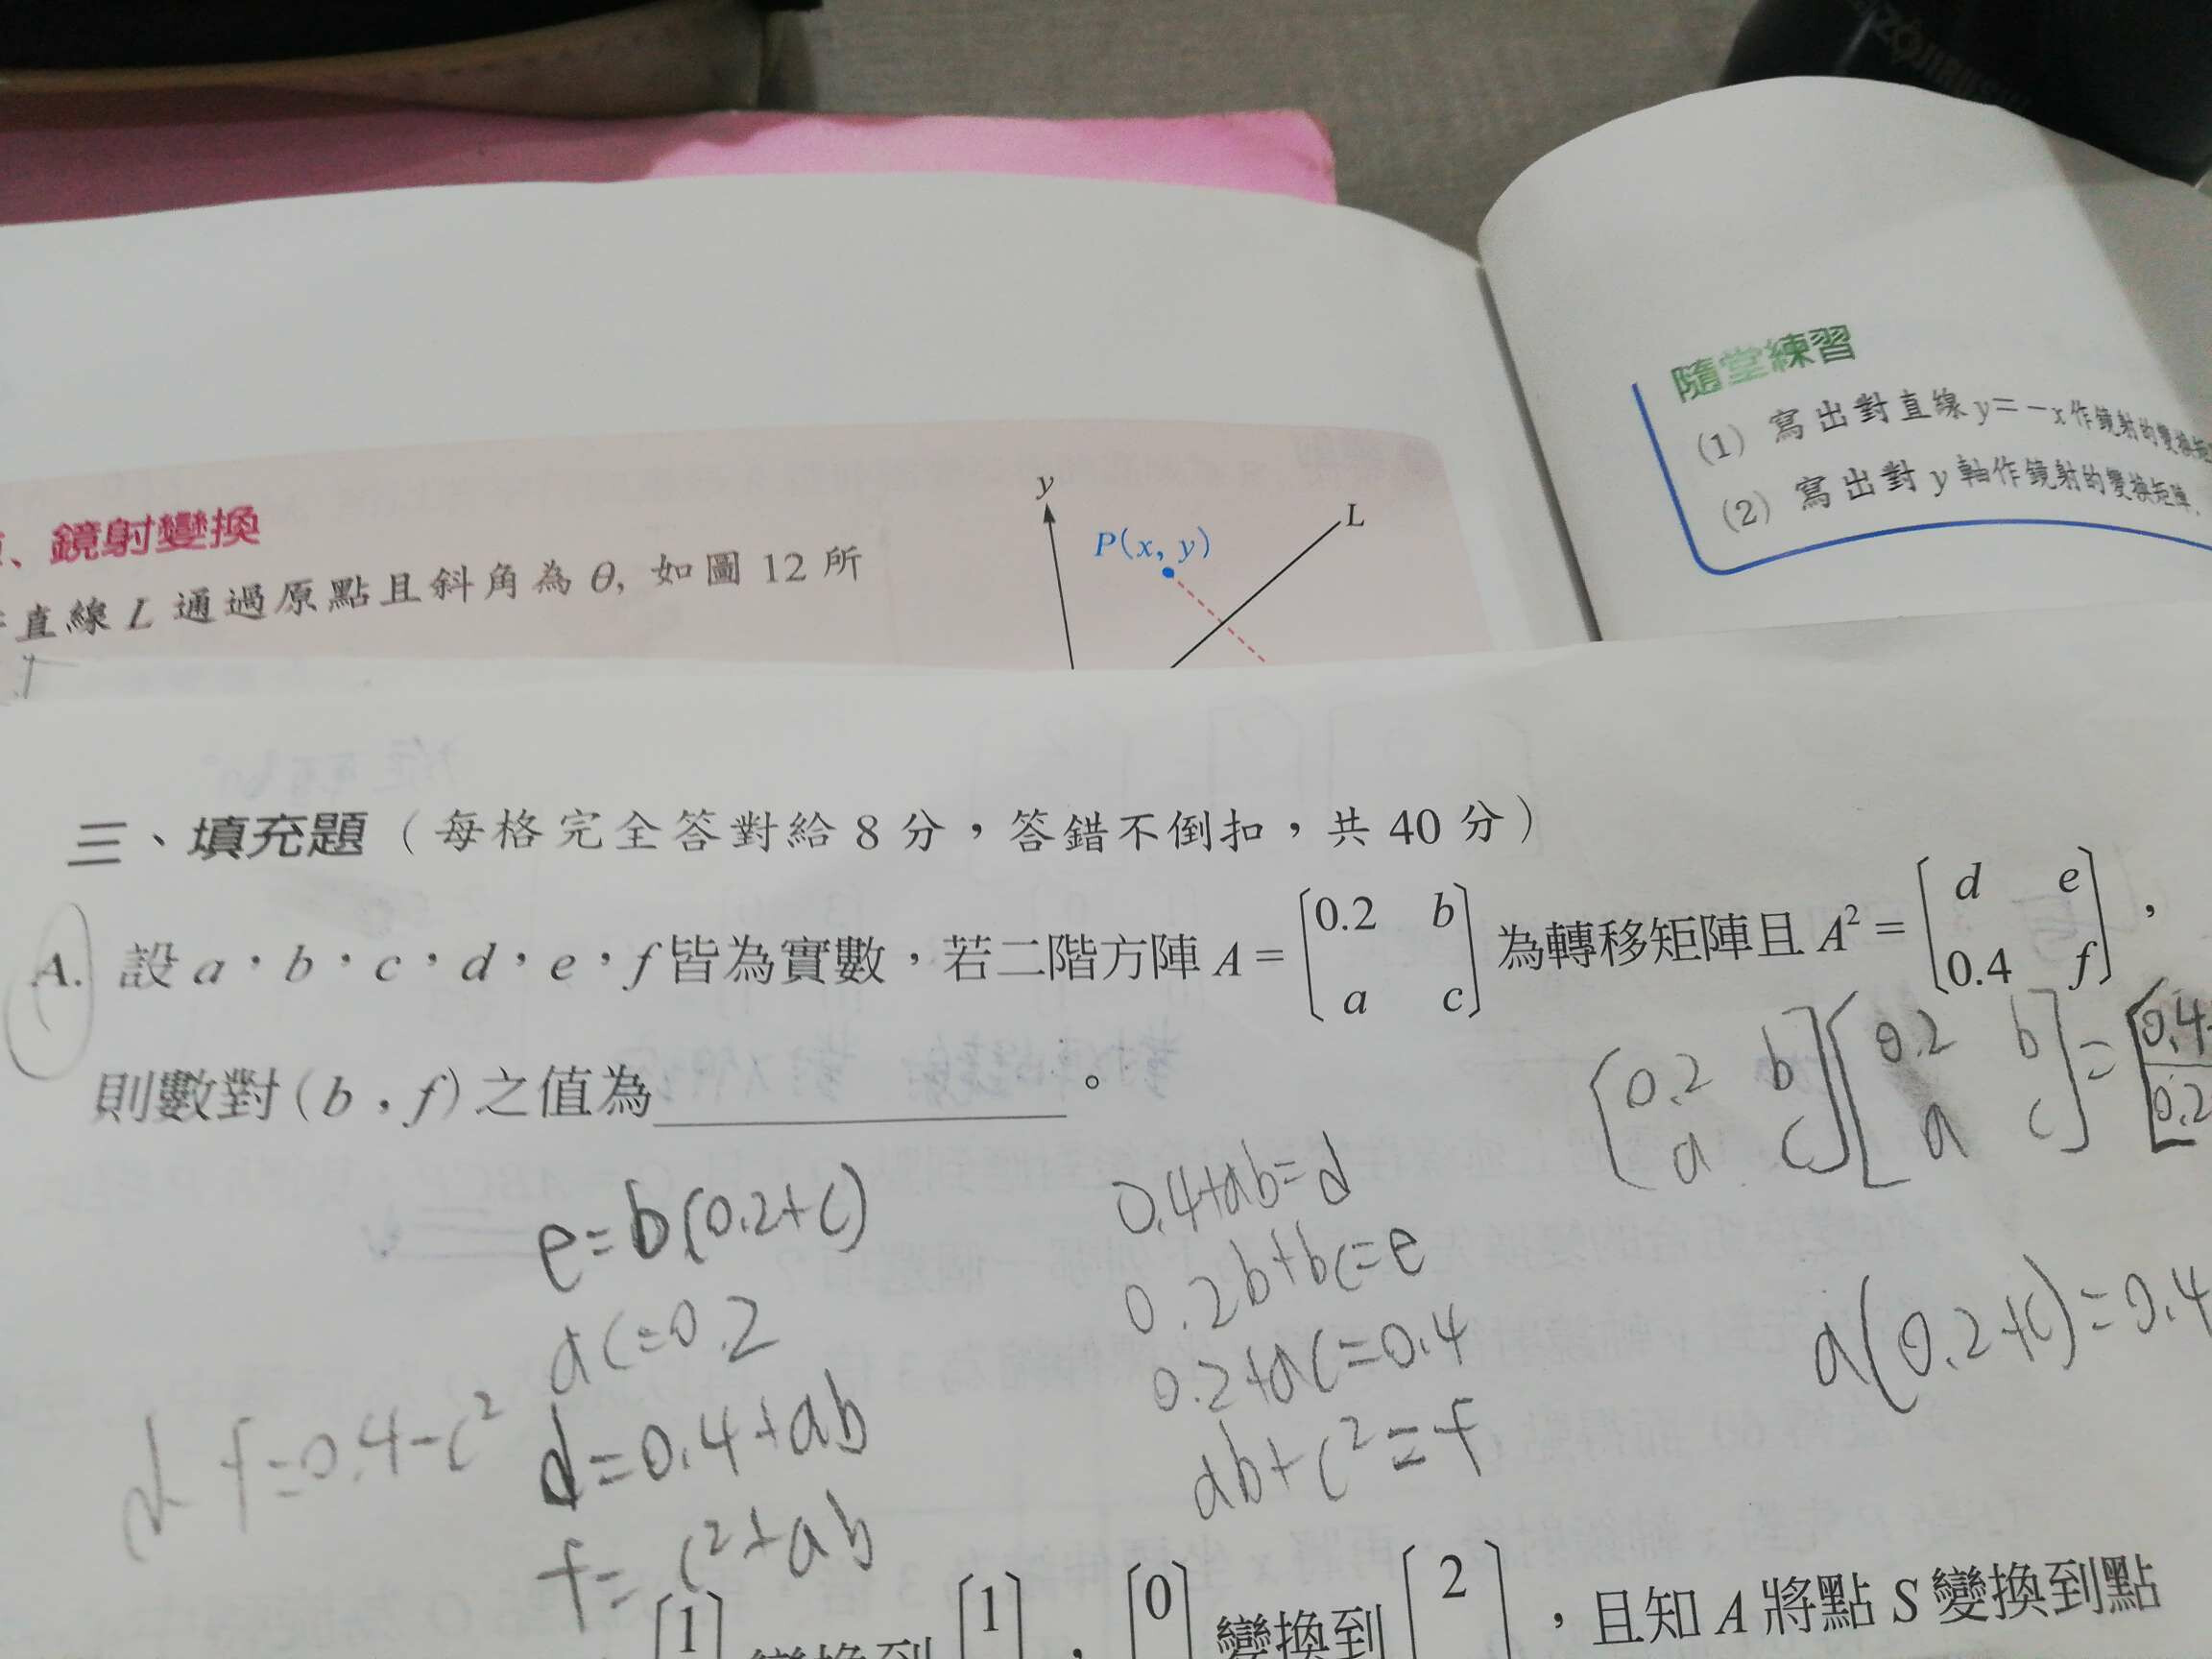 ZOJIRUSHI
隨堂練習
(1) 寫出對直線 y=-x 作鏡射的變換矩
(2) 寫出對 y 軸作鏡射的變換矩陣.
、鏡射變換
直線 L 通過原點且斜角為 θ, 如圖 12 所
y
P(x, y)
L
三、填充題(每格完全答對給 8 分,答錯不倒扣,共 40 分)
A. 設 a,b,c,d,e,f 皆為實數,若二階方陣 A = [0.2 b; a c] 為轉移矩陣且 A² = [d e; 0.4 f],
則數對 (b,f) 之值為________。
[0.2 b; a c][0.2 b; a c] = [0.4; 0.2
e=b(0.2+c)
ac=0.2
d=0.4+ab
f=c²+ab
0.4+ab=d
0.2b+bc=e
0.2+ac=0.4
ab+c²=f
a(0.2+c)=0.4
d f=0.4-c²
[1 變換到 [1, [0 變換到 [2,且知 A 將點 S 變換到點